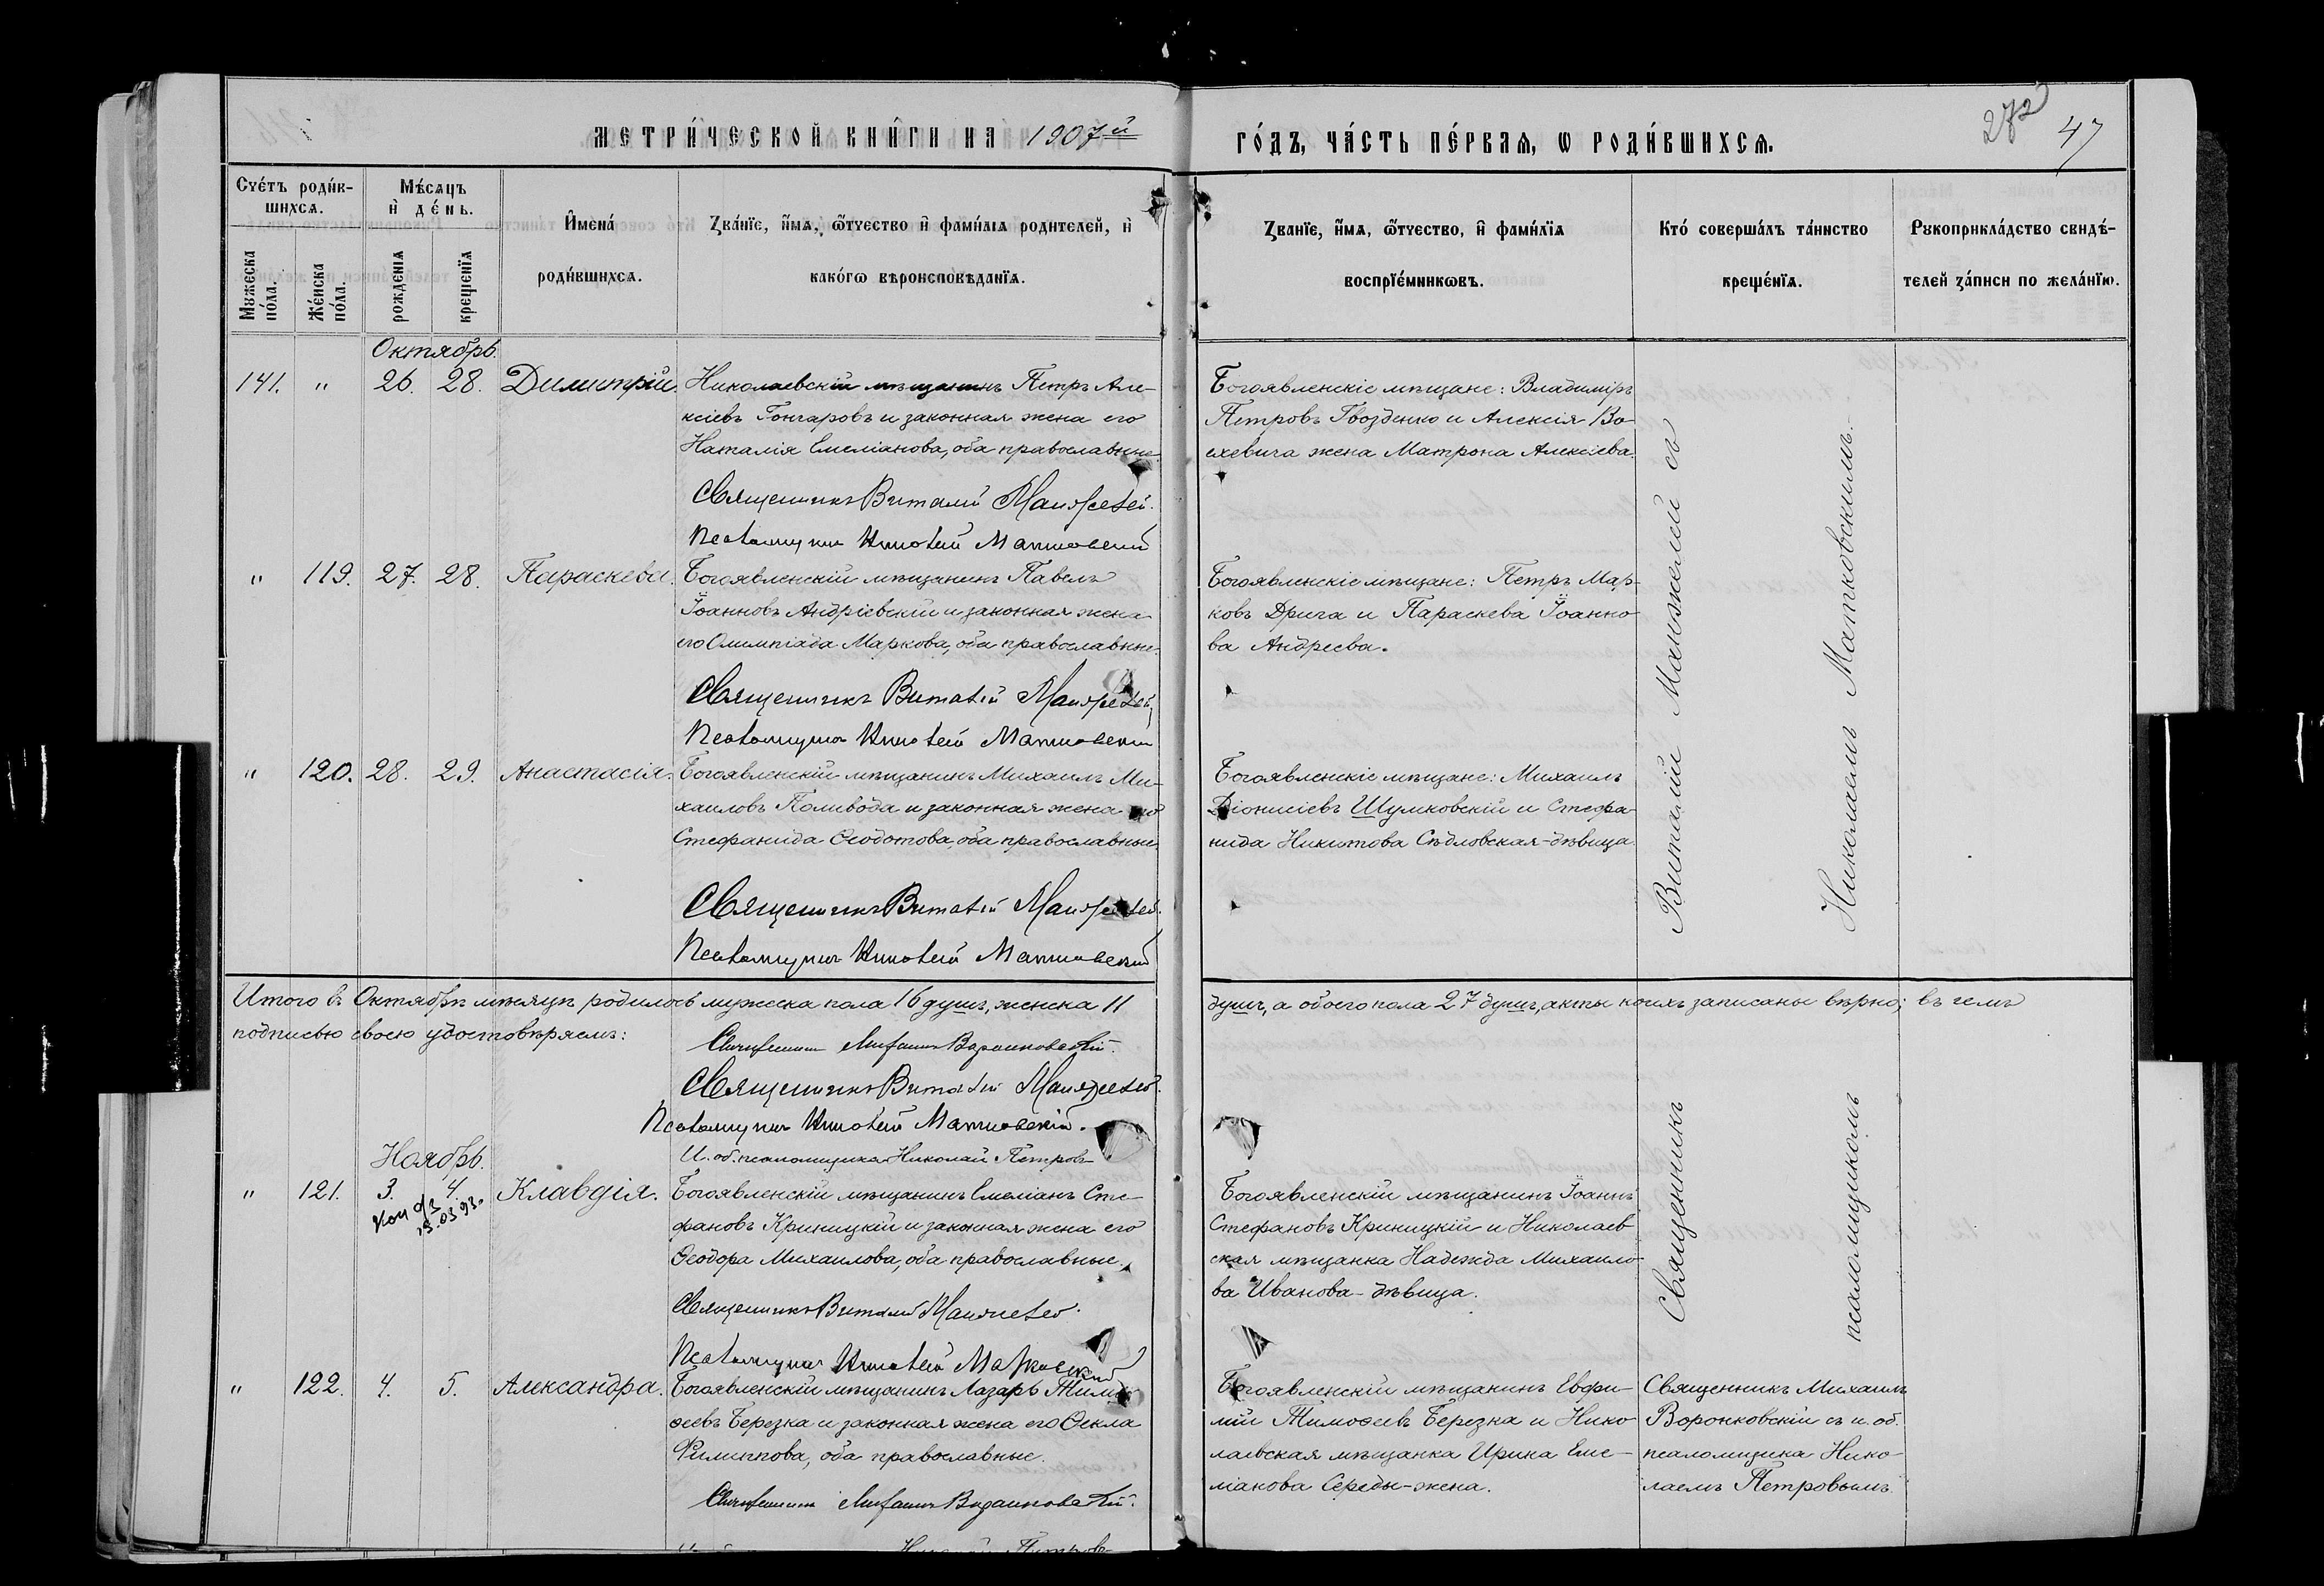 МЕТРИ́ЧЕСКОЙ КНИ́ГИ НА 1907й
ГО́ДЪ, ЧА́СТЬ ПЕ́РВАѦ, Ѡ РОДИ́ВШИХСѦ.
272
47
Счетъ роди́вшихсѧ.
Мꙋжеска по́ла.
Же́нска по́ла.
Мѣ́сѧцъ и҆ де́нь.
рожденїѧ
крещенїѧ
И҆мена́
роди́вшихсѧ.
Ꙁва́нїе, и҆́мѧ, ѻ҆́тчество и҆ фами́лїѧ родителей, и҆
како́гѡ вѣроисповѣданїѧ.
Ꙁванїе, и҆́мѧ, ѻ҆́тчество, и҆ фами́лїѧ
воспрїе́мникѡвъ.
Кто́ соверша́лъ та́инство
креще́нїѧ.
Рꙋкоприкла́дство свидѣ́-
телей ꙁа́писи по жела́нїю.
Октябрь.
141. " 26. 28. Димитрій.
Николаевскій мѣщанинъ Петръ Але-
ксіевъ Гончаровъ и законная жена его
Наталія Емеліанова, оба православные.
Священникъ Виталій Манжелей.
Псаломщикъ Николай Матковскій
Богоявленскіе мѣщане: Владиміръ
Петровъ Гвозденко и Алексія
жена Матрона Алексіева.
" 119. 27. 28. Параскева.
Богоявленскій мѣщанинъ Павелъ
Іоанновъ Андріевскій и законная жена
его Олимпіада Маркова, оба православные.
Священникъ Виталій Манжелей
Псаломщикъ Николай Матковскій
Богоявленскіе мѣщане: Петръ Мар-
ковъ Дрига и Параскева Іоанно-
ва Андреева.
" 120. 28. 29. Анастасія.
Богоявленскій мѣщанинъ Михаилъ Ми-
хаиловъ Поливода и законная жена его
Стефанида Ѳеодотова, оба православные.
Священникъ Виталій Манжелей.
Псаломщикъ Николай Матковскій
Богоявленскіе мѣщане: Михаилъ
Діонисіевъ Шумковскій и Стефа-
нида Никитова Сѣдловская-дѣвица.
Итого въ Октябрѣ мѣсяцѣ родилось мужеска пола 16 душъ, женска 11
душъ, а обоего пола 27 душъ, акты коихъ записаны вѣрно; въ чемъ
подписью своею удостовѣряемъ:
Священникъ Михаилъ Воронковскій.
Священникъ Виталій Манжелей.
Псаломщикъ Николай Матковскій.
И. об. псаломщика Николай Петровъ
Ноябрь.
" 121. 3. 4. Клавдія.
23.03.93.
Богоявленскій мѣщанинъ Емеліанъ Сте-
фановъ Криницкій и законная жена его
Ѳеодора Михаилова, оба православные.
Священникъ Виталій Манжелей.
Псаломщикъ Николай Матковскій
Богоявленскій мѣщанинъ Іоаннъ
Стефановъ Криницкій и Николаев-
ская мѣщанка Надежда Михаило-
ва Иванова-дѣвица.
Священникъ Виталій Манжелей съ
псаломщикомъ Николаемъ Матковскимъ.
" 122. 4. 5. Александра.
Богоявленскій мѣщанинъ Лазарь Тимо-
ѳеевъ Березка и законная жена его Ѳекла
Филиппова, оба православные.
Священникъ Михаилъ Воронковскій.
Богоявленскій мѣщанинъ Евфи-
мій Тимоѳеевъ Березка и Нико-
лаевская мѣщанка Ирина Еме-
ліанова Середы-жена.
Священникъ Михаилъ
Воронковскій съ и. об.
псаломщика Нико-
лаемъ Петровымъ.